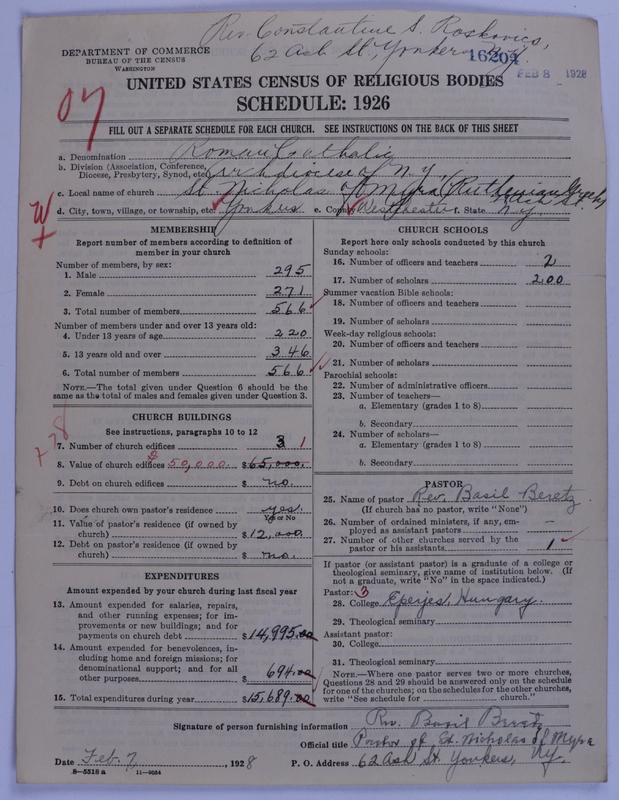 Rev. Constantine S. Roskovics,
62 Ash St., Yonkers, N.Y.
16204
FEB 8 1928
DEPARTMENT OF COMMERCE
BUREAU OF THE CENSUS
WASHINGTON
UNITED STATES CENSUS OF RELIGIOUS BODIES
SCHEDULE: 1926
FILL OUT A SEPARATE SCHEDULE FOR EACH CHURCH. SEE INSTRUCTIONS ON THE BACK OF THIS SHEET
a. Denomination Roman Catholic
b. Division (Association, Conference, Diocese, Presbytery, Synod, etc.) Archdiocese of N.Y.
c. Local name of church St. Nicholas of Myra (Ruthenian Greek)
d. City, town, village, or township, etc. Yonkers e. County Westchester f. State N.Y.
MEMBERSHIP
Report number of members according to definition of
member in your church
Number of members, by sex:
1. Male 295
2. Female 271
3. Total number of members 566
Number of members under and over 13 years old:
4. Under 13 years of age 220
5. 13 years old and over 346
6. Total number of members 566
NOTE.—The total given under Question 6 should be the
same as the total of males and females given under Question 3.
CHURCH BUILDINGS
See instructions, paragraphs 10 to 12
7. Number of church edifices 3 1
8. Value of church edifices 50,000 $65,000.
9. Debt on church edifices $ no.
10. Does church own pastor's residence yes.
Yes or No
11. Value of pastor's residence (if owned by
church) $12,000
12. Debt on pastor's residence (if owned by
church) $ no.
EXPENDITURES
Amount expended by your church during last fiscal year
13. Amount expended for salaries, repairs,
and other running expenses; for im-
provements or new buildings; and for
payments on church debt $14,995.00
14. Amount expended for benevolences, in-
cluding home and foreign missions; for
denominational support; and for all
other purposes $ 694.00
15. Total expenditures during year $15,689.00
CHURCH SCHOOLS
Report here only schools conducted by this church
Sunday schools:
16. Number of officers and teachers 2
17. Number of scholars 200
Summer vacation Bible schools:
18. Number of officers and teachers
19. Number of scholars
Week-day religious schools:
20. Number of officers and teachers
21. Number of scholars
Parochial schools:
22. Number of administrative officers
23. Number of teachers—
a. Elementary (grades 1 to 8)
b. Secondary
24. Number of scholars—
a. Elementary (grades 1 to 8)
b. Secondary
PASTOR
25. Name of pastor Rev. Basil Beretz.
(If church has no pastor, write "None")
26. Number of ordained ministers, if any, em-
ployed as assistant pastors –
27. Number of other churches served by the
pastor or his assistants 1
If pastor (or assistant pastor) is a graduate of a college or
theological seminary, give name of institution below. (If
not a graduate, write "No" in the space indicated.)
Pastor: 3
28. College Eperjes, Hungary.
29. Theological seminary
Assistant pastor:
30. College
31. Theological seminary
NOTE.—Where one pastor serves two or more churches,
Questions 28 and 29 should be answered only on the schedule
for one of the churches; on the schedules for the other churches,
write "See schedule for church."
Signature of person furnishing information Rev. Basil Beretz
Official title Pastor of St. Nicholas of Myra
Date Feb. 7, 1928 P. O. Address 62 Ash St. Yonkers, N.Y.
8—5518 a 11—9034